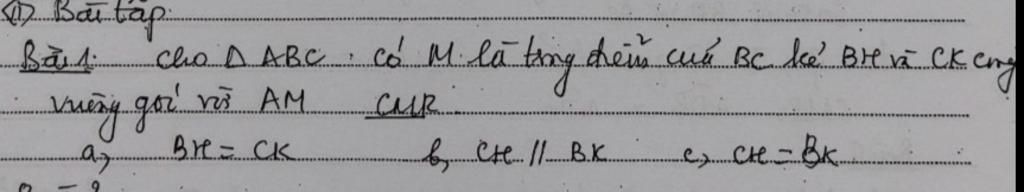 (1) Bài tập:
Bài 1: Cho Δ ABC. có M là trung điểm của BC kẻ BH và CK cùng
vuông góc với AM CMR.
a, BH = CK b, CH // BK c, CH = BK